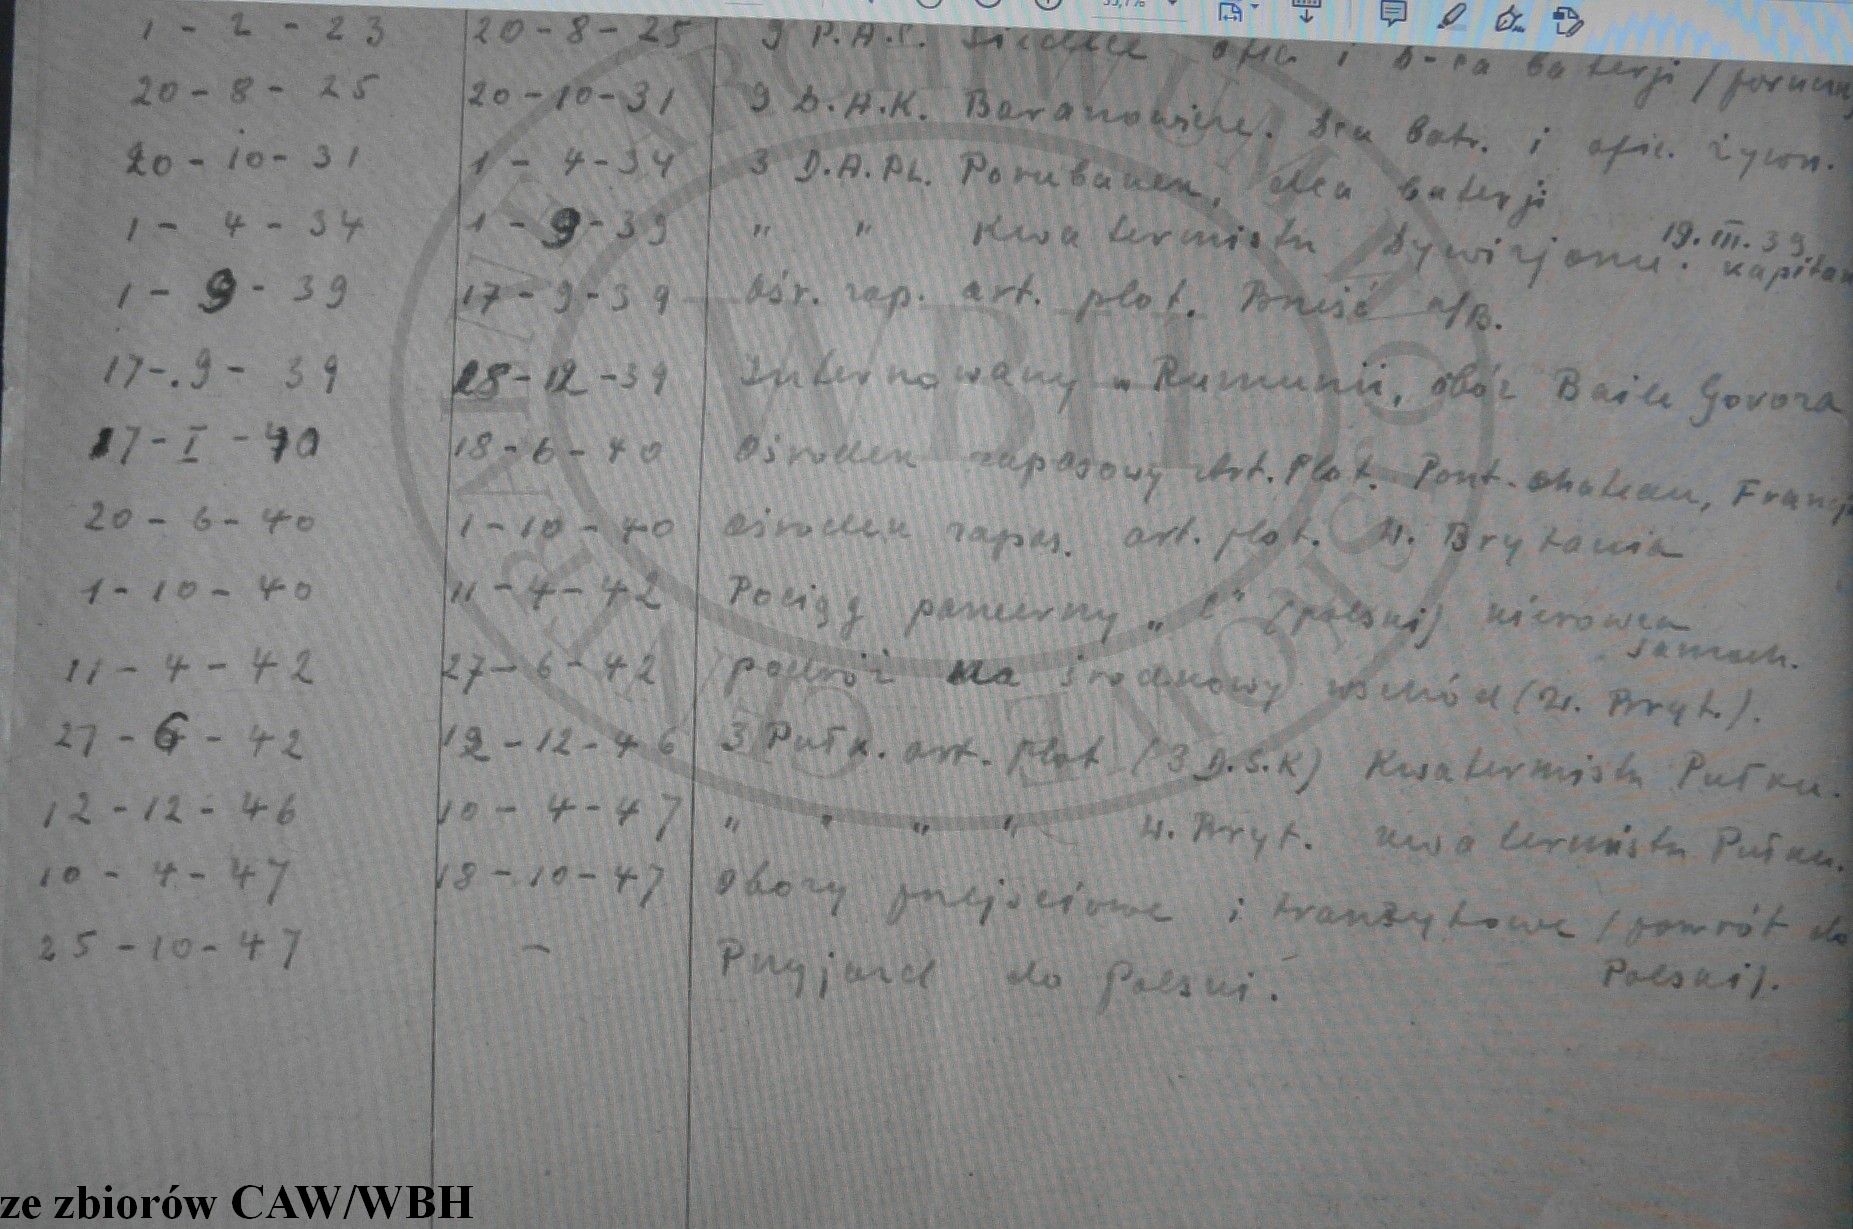 1 - 2 - 23 20-8-25 9 P.A.C. Siedlce ofic. i D-ca baterji /porucz
20-8-25 20-10-31 9 D.A.K. Baranowicze. Dca bat. i ofic. żywn.
20-10-31 1-4-34 3 D.A.PL. Porubanek, dca baterji
1-4-34 1-9-39 " " Kwatermistrz Dywizjonu. 19.III.39. kapitan
1-9-39 17-9-39 Ośr. zap. art. plot. Brześć n/B.
17-9-39 28-12-39 Internowany w Rumunii, obóz Baile Govora
17-I-40 18-6-40 Ośrodek zapasowy Art. Plot. Pont-chateau, Francj
20-6-40 1-10-40 Ośrodek zapas. art. plot. W. Brytania
1-10-40 11-4-42 Pociąg pancerny „C" (polski) kierowca
samoch.
11-4-42 27-6-42 podróż na środkowy wschód (W. Bryt.).
27-6-42 12-12-46 3 Pułk. art. plot (3 D.S.K) Kwatermistrz Pułku.
12-12-46 10-4-47 " " " " W. Bryt. kwatermistrz Pułku.
10-4-47 18-10-47 obozy przejściowe i tranzytowe /powrót do
Polski).
25-10-47 - Przyjazd do Polski.
ARCHIWUM
WBH
ze zbiorów CAW/WBH